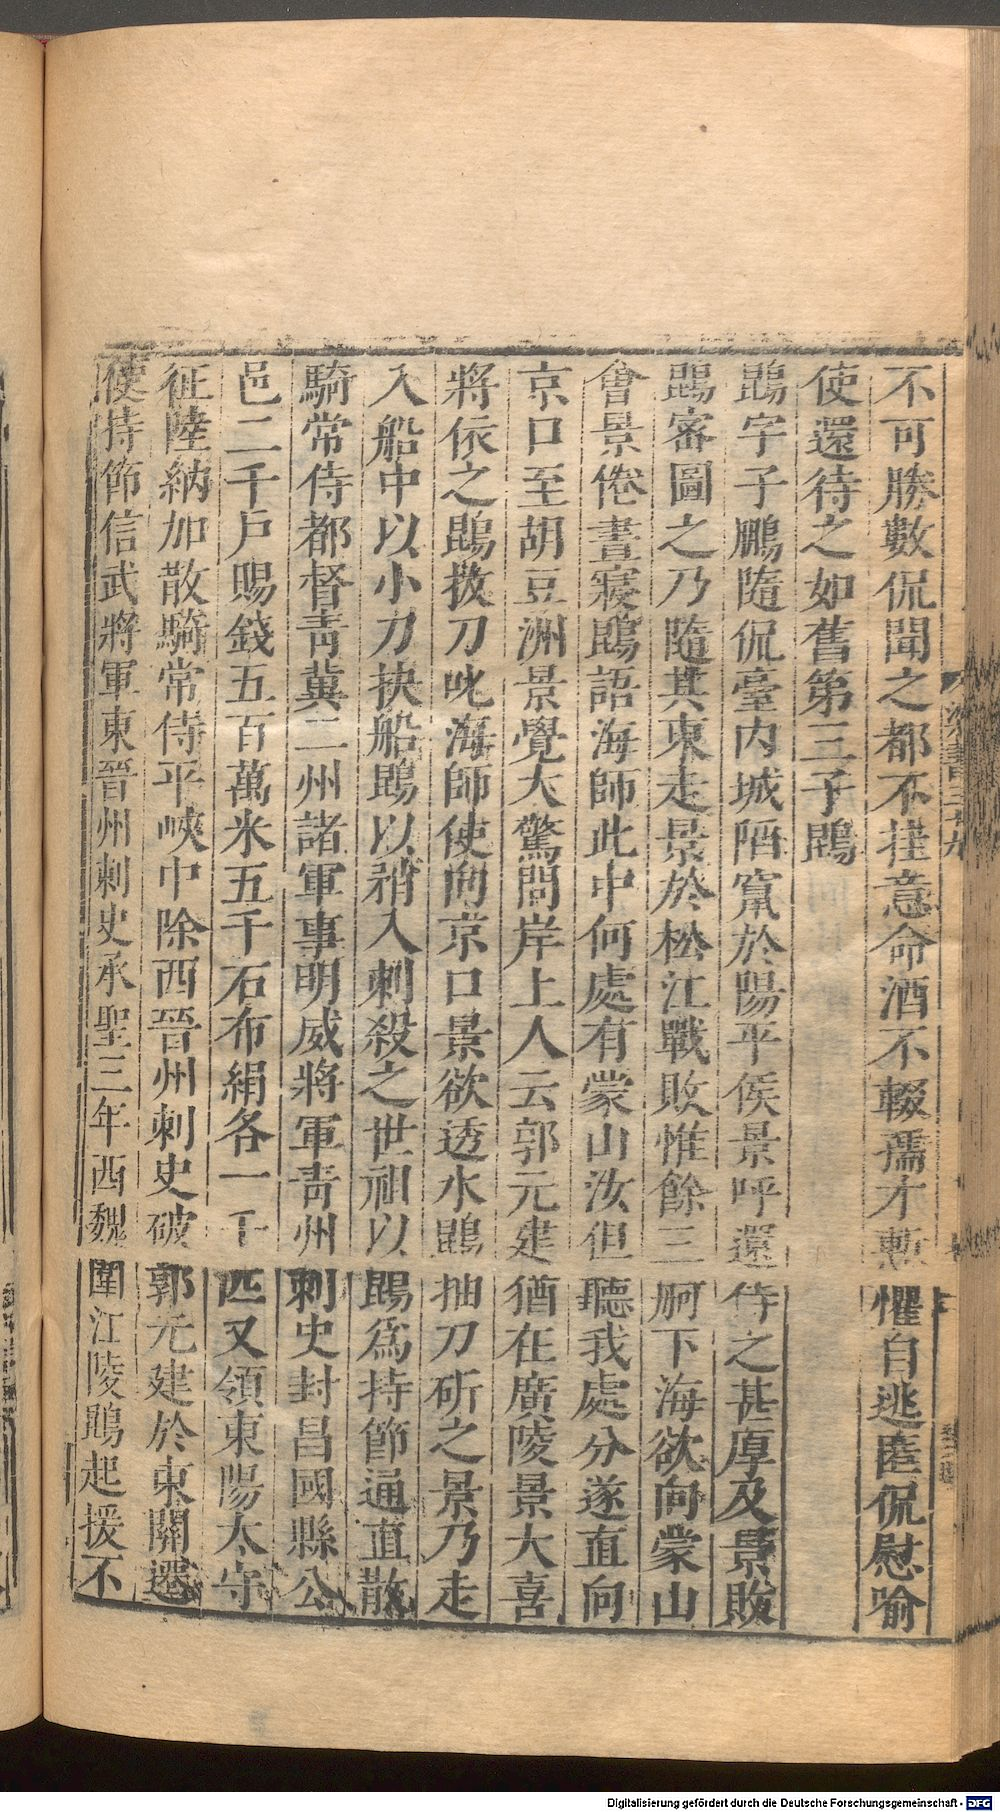 不可勝數侃聞之都不挂意命酒不輟孺才慙懼自逃匿侃慰喻
使還待之如舊第三子鵾
鵾字子鵬隨侃臺內城陷竄於陽平侯景呼還待之甚厚及景敗
鵾密圖之乃隨其東走景於松江戰敗惟餘三舸下海欲向蒙山
會景倦晝寢鵾語海師此中何處有蒙山汝但聽我處分遂直向
京口至胡豆洲景覺大驚問岸上人云郭元建猶在廣陵景大喜
將依之鵾拔刀叱海師使向京口景欲透水鵾抽刀斫之景乃走
入船中以小刀抉船鵾以矟入刺殺之世祖以鵾爲持節通直散
騎常侍都督靑冀二州諸軍事明威將軍靑州刺史封昌國縣公
邑二千戶賜錢五百萬米五千石布絹各一千匹又領東陽太守
征陸納加散騎常侍平峽中除西晉州刺史破郭元建於東關還
使持節信武將軍東晉州刺史承聖三年西魏圍江陵鵾起援不
Digitalisierung gefördert durch die Deutsche Forschungsgemeinschaft - DFG